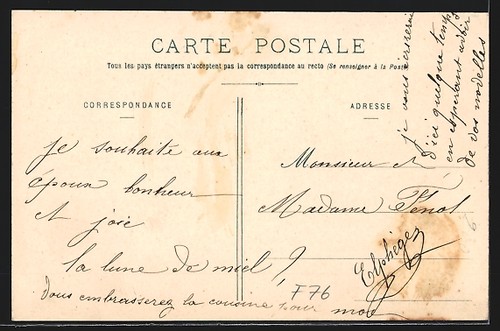 CARTE POSTALE
Tous les pays étrangers n'acceptent pas la correspondance au recto (Se renseigner à la Poste)
CORRESPONDANCE
je souhaite aux
époux bonheur
et joie
la lune de miel !
Vous embrasserez la cousine pour
moi
F76
ADRESSE
Monsieur et
Madame
Elphège
je vous
d'ici quelque temps
en espérant avoir
de vos nouvelles